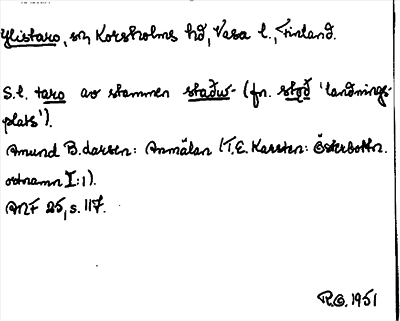 Ylistaro, sn, Korsholms hd, Vasa l., Finland.
S.l. taro av stammen staðw- (fn. stǫð 'landnings-
plats').
Amund B. Larsen: Anmälan (T.E. Karsten: Österbottn.
ortnamn I:1).
ANF 25, s. 117.
R.G. 1951